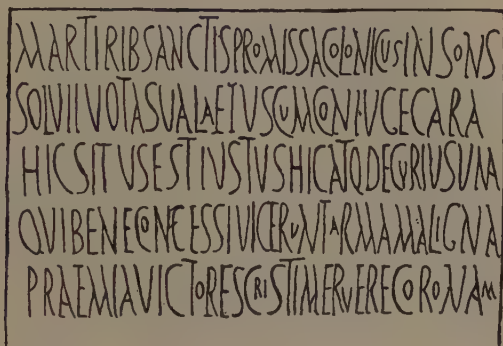 MARTIRIBSANCTISPROMISSACOLONICUSINSONS
SOLUITUOTASUALAETUSCUMCONIUGECARA
HICSITUSESTIUSTUSHICATQDECURIUSUNA
QUIBENECONCESSIUICERUNTARMAMALIGNA
PRAEMIAUICTORESCRISTIMERUERECORONAM